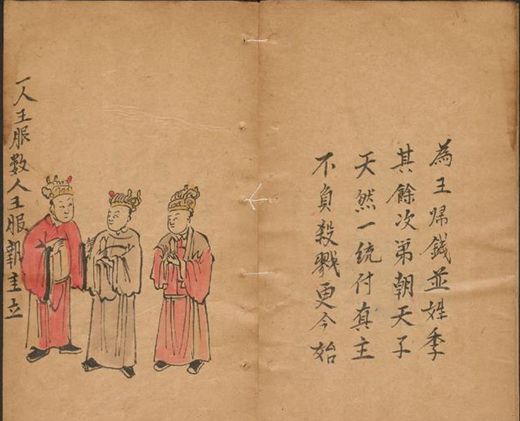 為王歸錢並姓季
其餘次第朝天子
天然一統付真主
不負殺戮更今始
一人王服數人王服執圭立